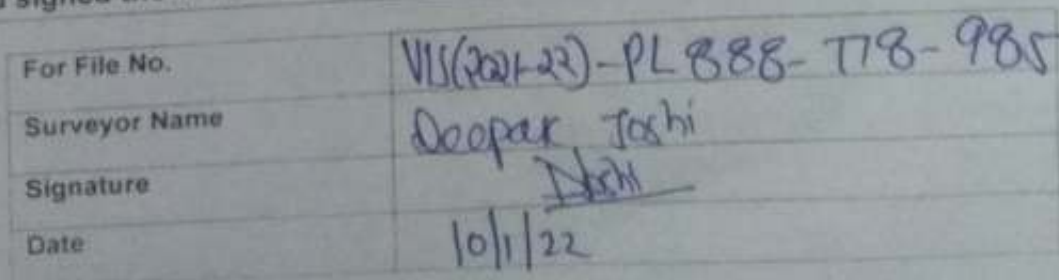 signed
For File No. VIS(2021-22)-PL888-778-985
Surveyor Name Deepak Joshi
Signature DJoshi
Date 10/1/22